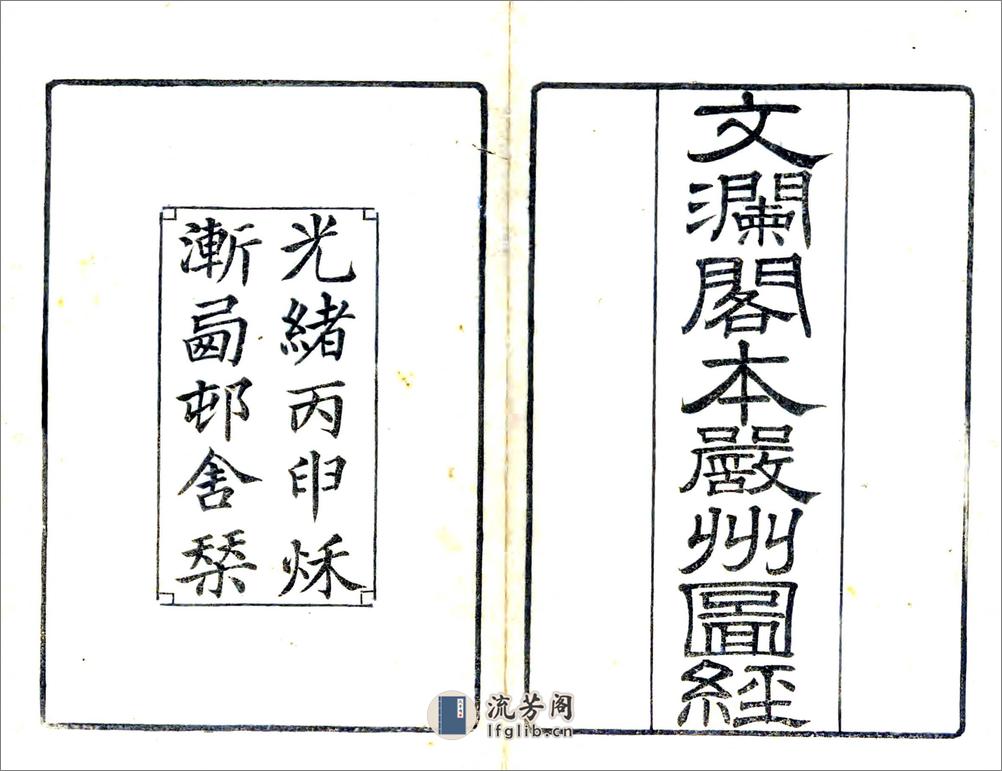 文瀾閣本嚴州圖經
光緒丙申秌
漸卥邨舍栞
流芳阁
lfglib.cn